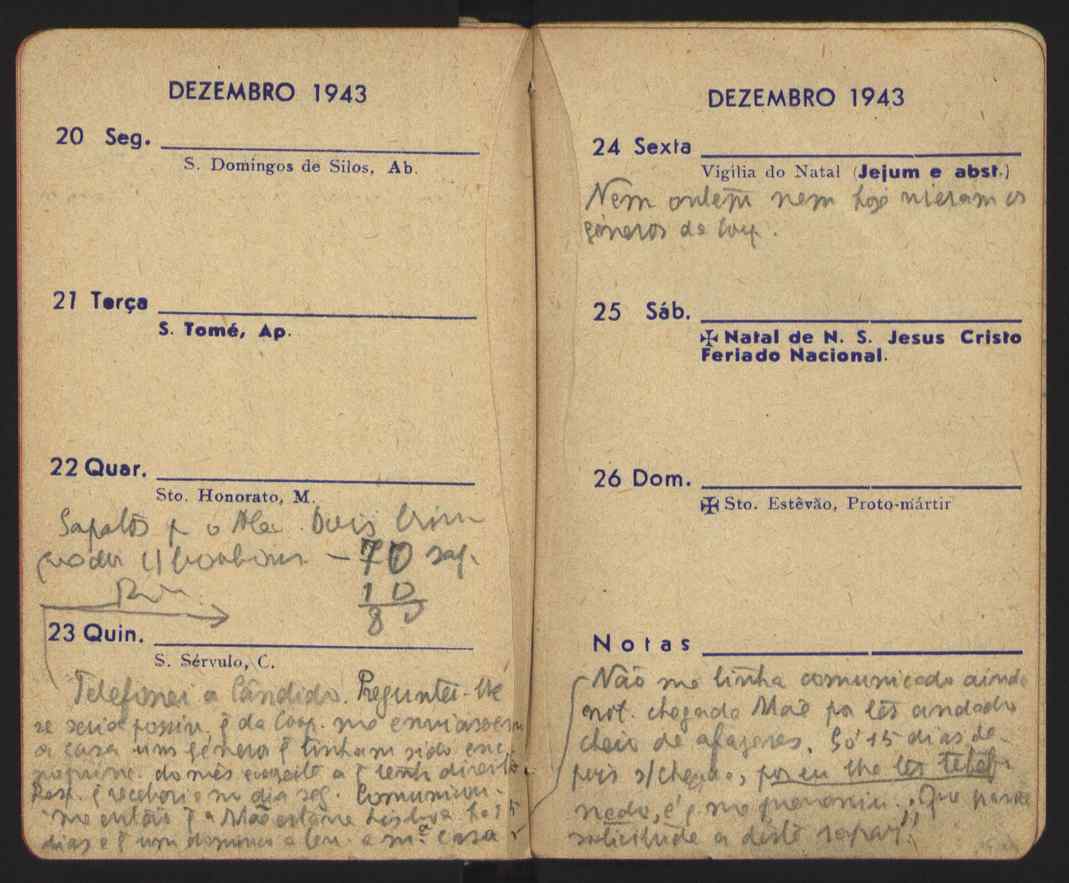 DEZEMBRO 1943
20 Seg.
S. Domingos de Silos, Ab.
21 Terça
S. Tomé, Ap.
22 Quar.
Sto. Honorato, M.
Sapatos p o Dois
— 70
10
80
23 Quin.
S. Sérvulo, C.
Telefonei a Cândido. Preguntei-lhe
se seria q da Coop. me enviassem
a casa uns géneros q tinham sido
do mês a q tenho direito
q receberia no dia seg. Comunicou-
me então q a Mãe estava Lisboa há 15
dias e q um domingo a a m.ª casa
DEZEMBRO 1943
24 Sexta
Vigília do Natal (Jejum e abst.)
Nem ontem nem hoje vieram os
géneros da Coop.
25 Sáb.
✠ Natal de N. S. Jesus Cristo
Feriado Nacional.
26 Dom.
✠ Sto. Estêvão, Proto-mártir
Notas
Não me tinha comunicado ainda
not. chegada Mãe por ter andado
cheio de afazeres. Só 15 dias de-
pois s/chegada, por eu lhe ter telefo
nado, é q me Que
solicitude a deste rapaz!